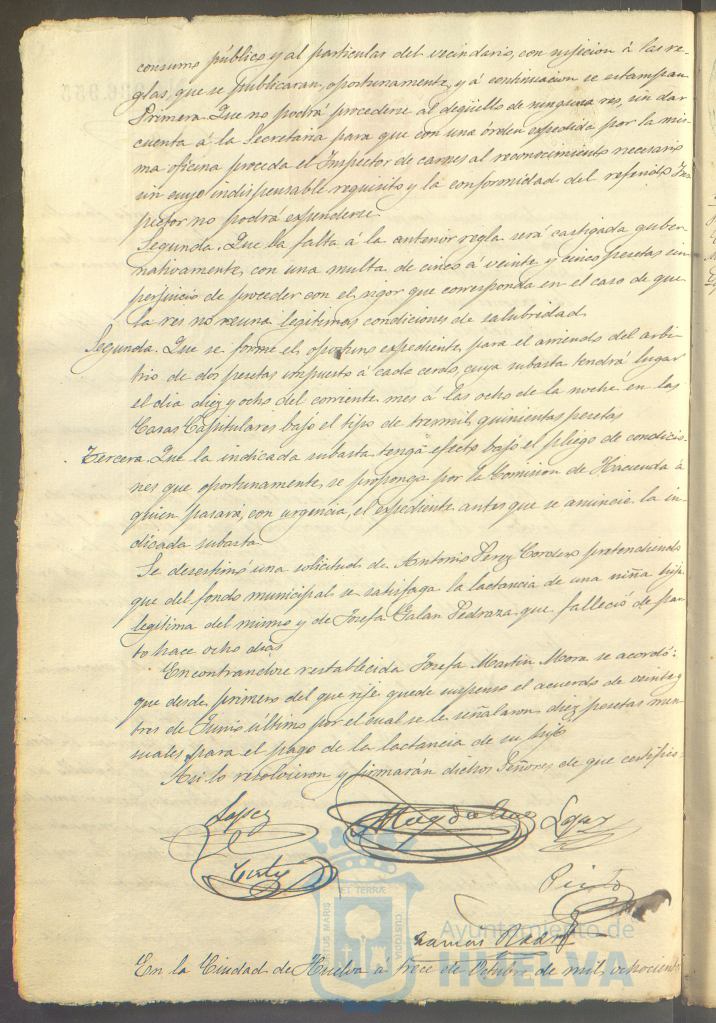 consumo público y al particular del vecindario, con sujecion á las re-
glas, que se publicaran, oportunamente, y á continuacion se estampan
Primera. Que no podrá procederse al degüello de ninguna res, sin dar
cuenta á la Secretaria para que con una órden expedida por la mis-
ma oficina proceda el Inspector de carnes al reconocimiento necesario
sin cuyo indispensable requisito y la conformidad del referido Ins
pector no podrá expenderse.
Segunda. Que la falta á la anterior regla será castigada guber-
nativamente, con una multa de cinco á veinte y cinco pesetas sin
perjuicio de proceder con el rigor que corresponda en el caso de que
la res no reuna legitimas condiciones de salubridad.
Segunda. Que se forme el oportuno expediente, para el arriendo del arbi-
trio de dos pesetas impuesto á cada cerdo, cuya subasta tendrá lugar
el dia diez y ocho del corriente mes á las ocho de la noche en las
Casas Capitulares bajo el tipo de tresmil quinientas pesetas
Tercera. Que la indicada subasta tenga efecto bajo el pliego de condicio-
nes que oportunamente, se proponga por la Comision de Hacienda á
quien pasará, con urgencia, el Expediente antes que se anuncie la in-
dicada subasta.
Se desestimó una solicitud de Antonio Perez Cordero pretendiendo
que del fondo municipal se satisfaga la lactancia de una niña hija
legitima del mismo y de Josefa Galan Pedraza que falleció de par-
to hace ocho dias
Encontrandose restablecida Josefa Martin Mora se acordó:
que desde primero del que rije quede suspenso el acuerdo de veinte y
tres de Junio último por el cual se le señalaron diez pesetas men-
suales para el pago de la lactancia de su hijo
Asi lo resolvieron y firmarán dichos Señores de que certifico.
Lopez
EL TERRÆ
PORTUS MARIS
CUSTODIA
Ayuntamiento de
HUELVA
En la Ciudad de Huelva á trece de Octubre de mil ochocient